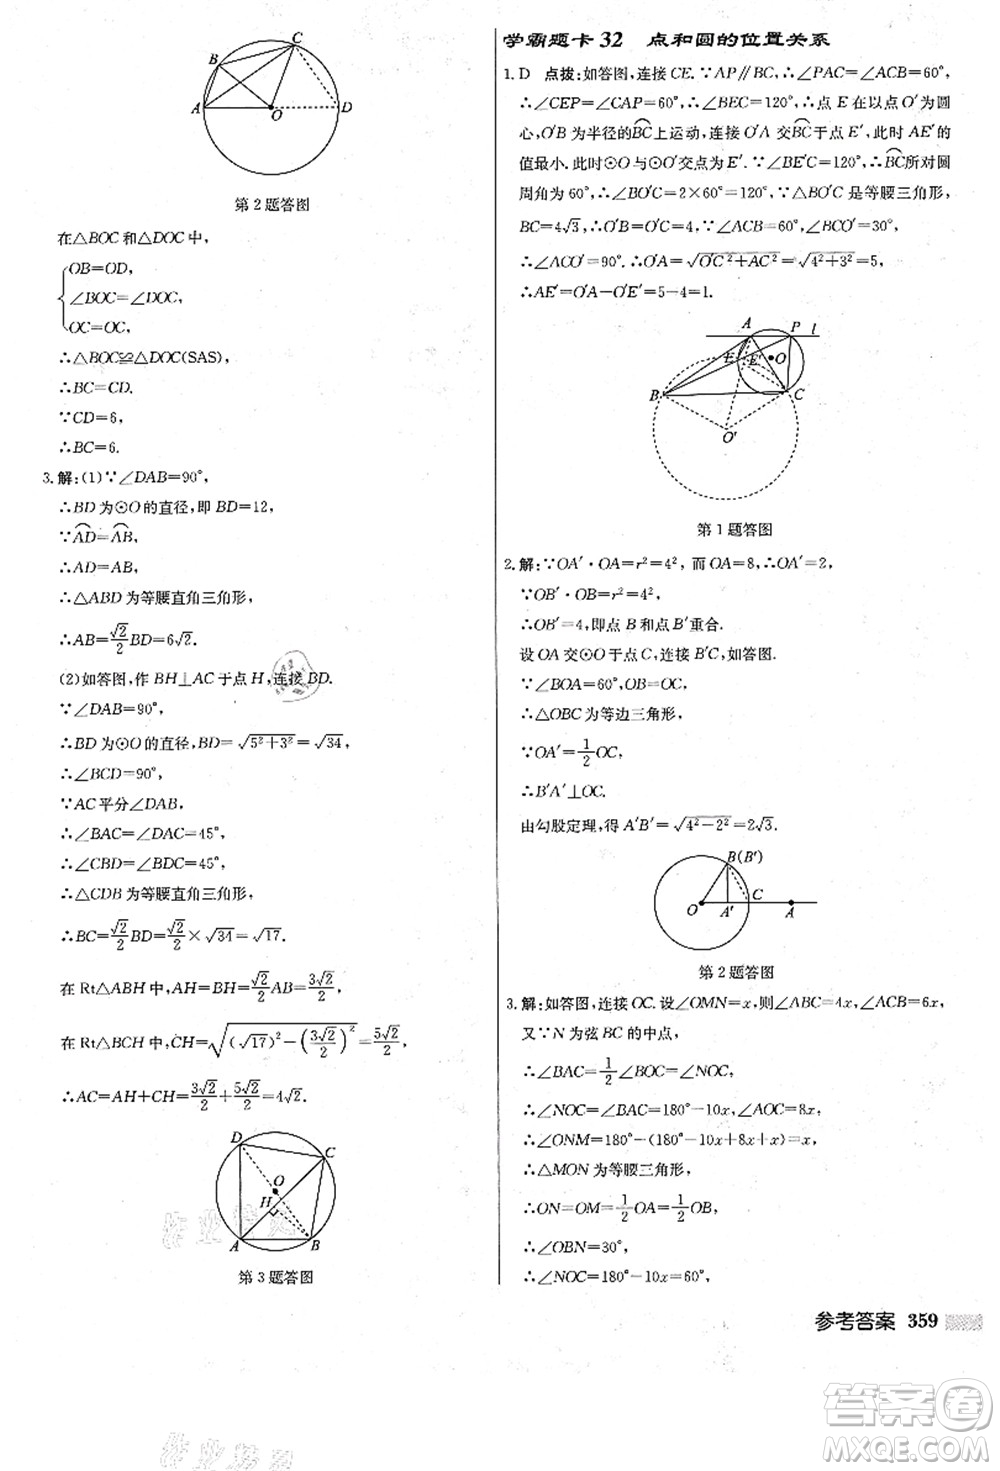 B
C
A
O
D
第2题答图
在△BOC和△DOC中,
OB=OD,
∠BOC=∠DOC,
OC=OC,
∴△BOC≌△DOC(SAS)
∴BC=CD.
∵CD=6,
∴BC=6.
3.解:(1)∵∠DAB=90°,
∴BD为⊙O的直径,即BD=12,
∵AD=AB,
∴AD=AB,
∴△ABD为等腰直角三角形,
∴AB=√2/2 BD=6√2.
(2)如答图,作BH⊥AC于点H,连接BD.
∵∠DAB=90°,
∴BD为⊙O的直径,BD=√(5²+3²)=√34,
∴∠BCD=90°,
∵AC平分∠DAB,
∴∠BAC=∠DAC=45°,
∴∠CDB=∠BDC=45°,
∴△CDB为等腰直角三角形,
∴BC=√2/2 BD=√2/2×√34=√17.
在Rt△ABH中,AH=BH=√2/2 AB=3√2/2,
在Rt△BCH中,CH=√((√17)²-(3√2/2)²)=5√2/2,
∴AC=AH+CH=3√2/2+5√2/2=4√2.
D
C
O
H
A
B
第3题答图
学霸题卡32 点和圆的位置关系
1.D 点拨:如答图,连接CE.∵AP∥BC,∴∠PAC=∠ACB=60°,
∴∠CEP=∠CAP=60°,∴∠BEC=120°,∴点E在以点O′为圆
心,O′B为半径的BC上运动,连接O′A交BC于点E′,此时AE′的
值最小.此时⊙O与⊙O′交点为E′.∵∠BE′C=120°,∴BC所对圆
周角为60°,∴∠BO′C=2×60°=120°,∵△BO′C是等腰三角形,
BC=4√3,∴O′B=O′C=4,∵∠ACB=60°,∠BCO′=30°,
∴∠ACO′=90°.∴O′A=√(O′C²+AC²)=√(4²+3²)=5,
∴AE′=O′A-O′E′=5-4=1.
A
P
l
E
E′
O
B
C
O′
第1题答图
2.解:∵OA′·OA=r²=4²,而OA=8,∴OA′=2,
∵OB′·OB=r²=4²,
∴OB′=4,即点B和点B′重合.
设OA交⊙O于点C,连接B′C,如答图.
∵∠BOA=60°,OB=OC,
∴△OBC为等边三角形,
∵OA′=1/2 OC,
∴B′A′⊥OC.
由勾股定理,得A′B′=√(4²-2²)=2√3.
B(B′)
C
O
A′
A
第2题答图
3.解:如答图,连接OC.设∠OMN=x,则∠ABC=4x,∠ACB=6x,
又∵N为弦BC的中点,
∴∠BAC=1/2∠BOC=∠NOC,
∴∠NOC=∠BAC=180°-10x,∠AOC=8x,
∴∠ONM=180°-(180°-10x+8x+x)=x,
∴△MON为等腰三角形,
∴ON=OM=1/2 OA=1/2 OB,
∴∠OBN=30°,
∴∠NOC=180°-10x=60°,
参考答案 359
答案圈
MXQE.COM